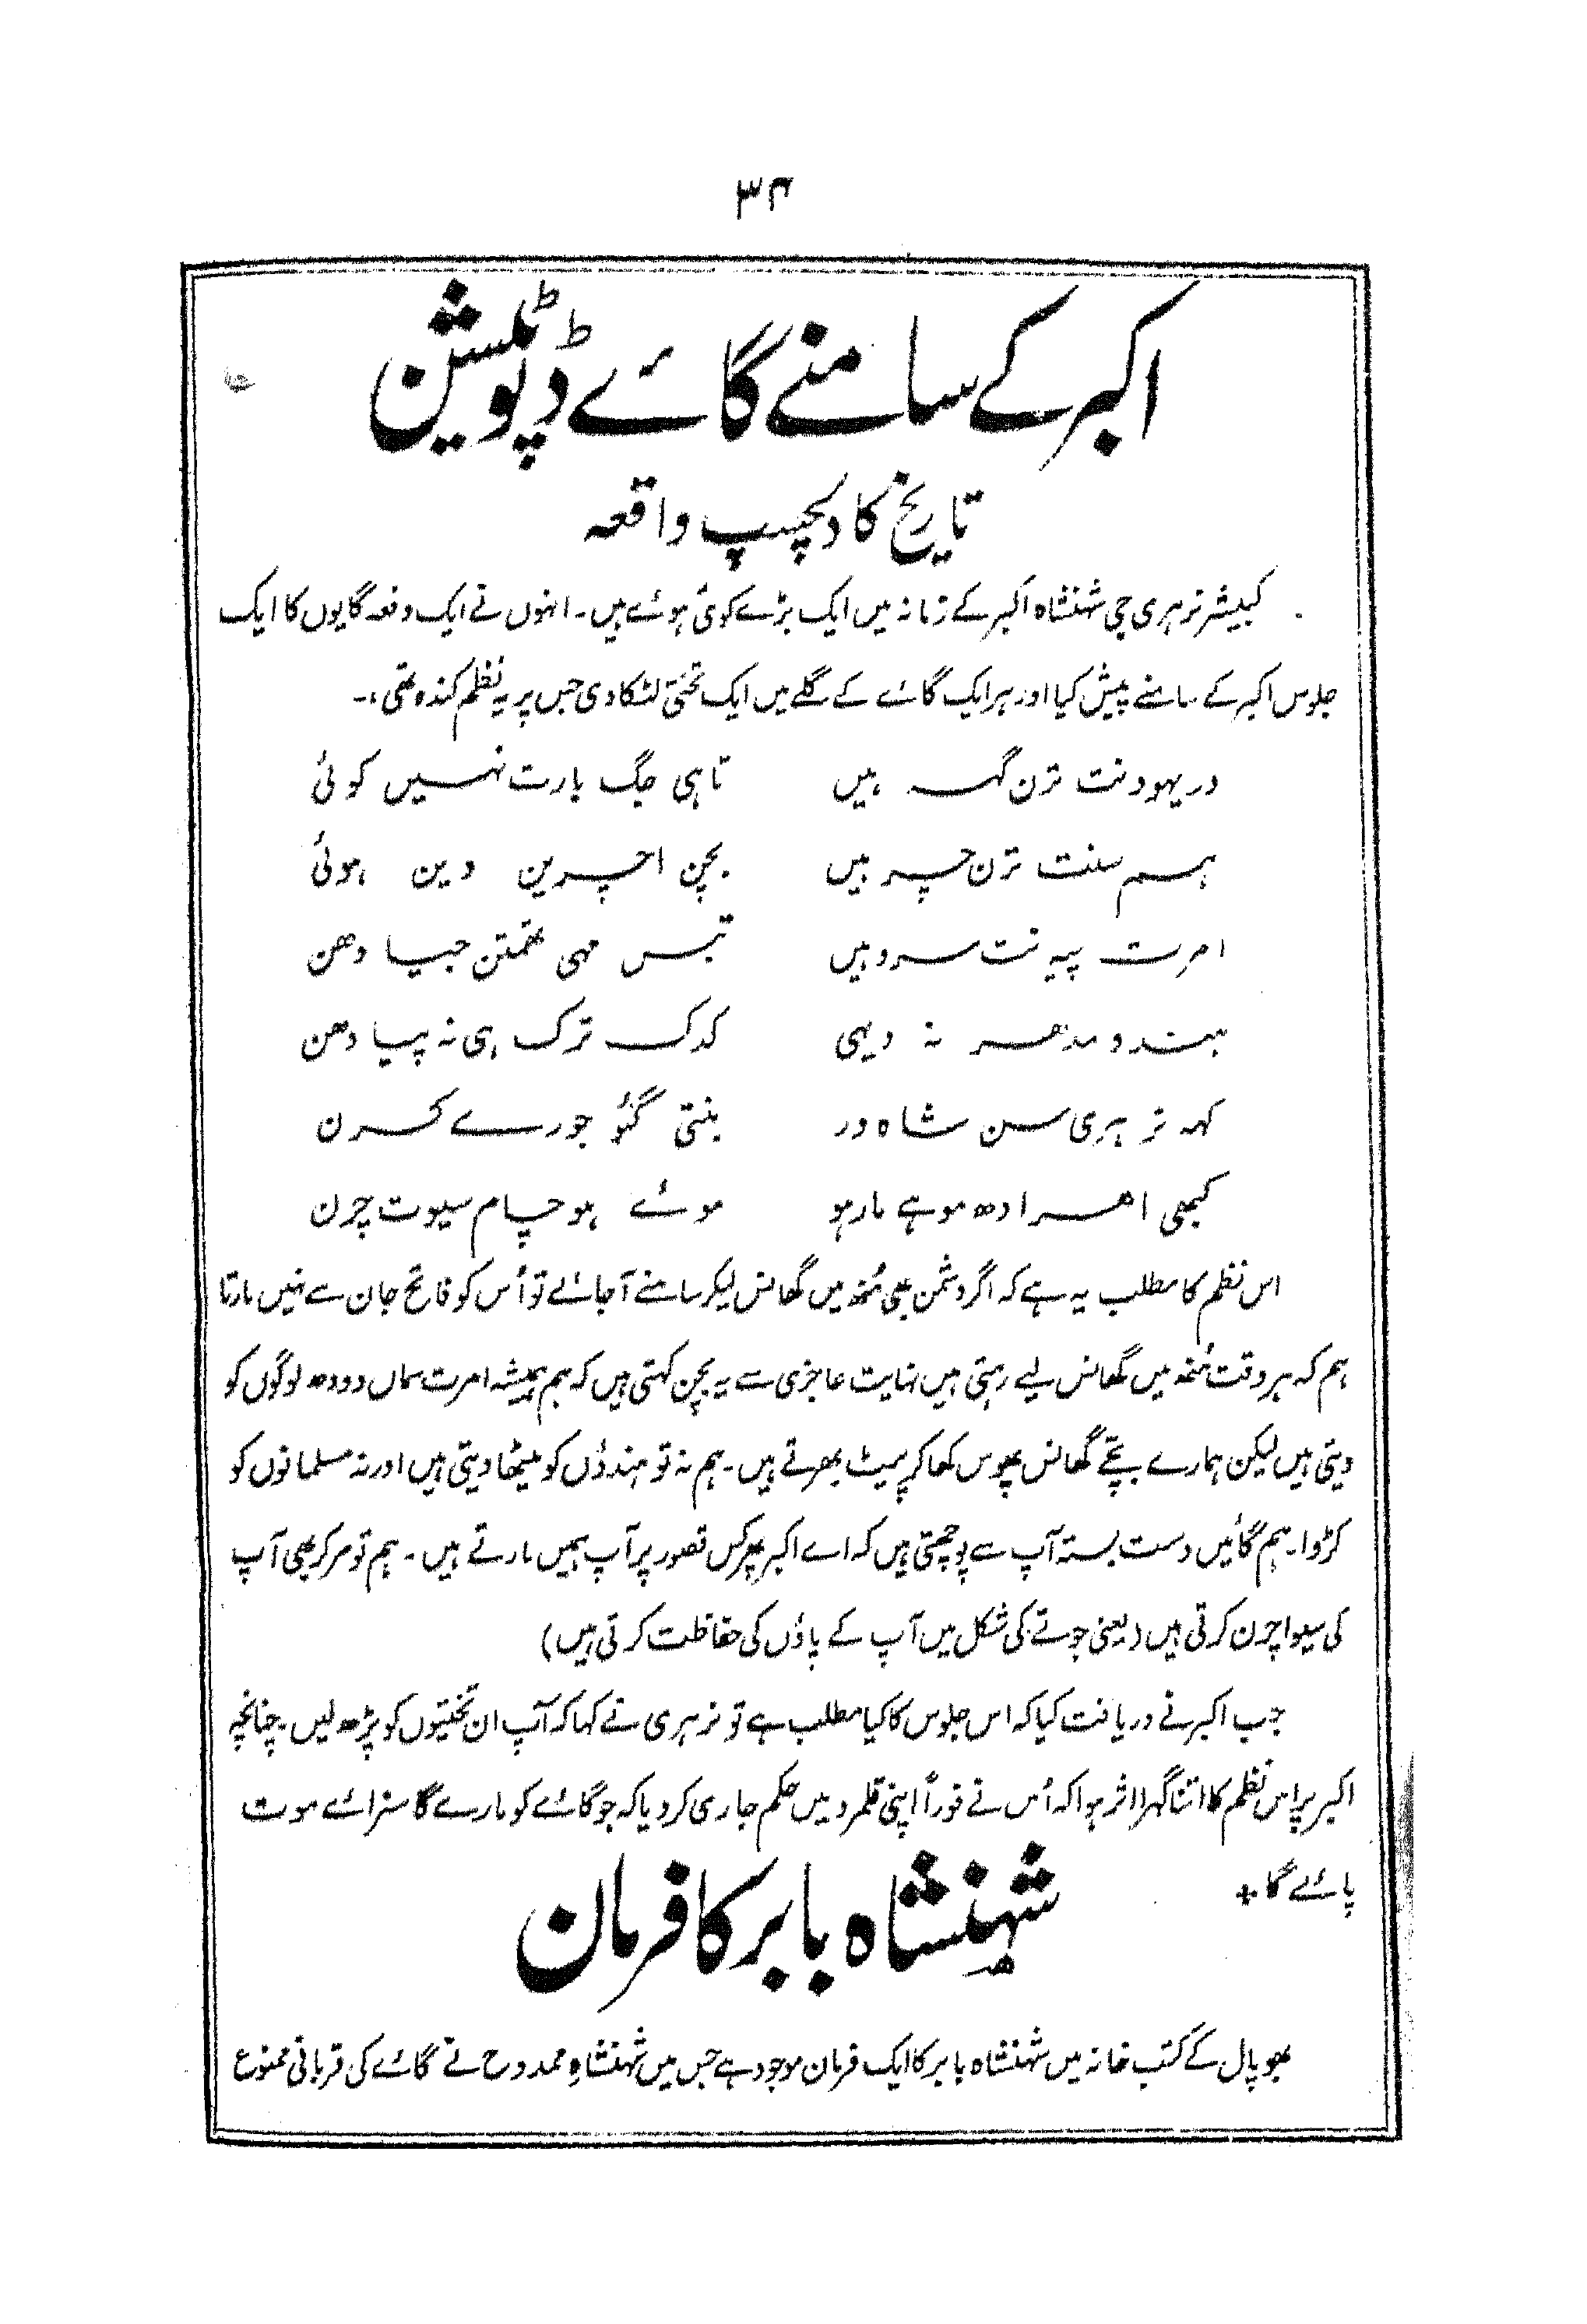 ۳۴
اکبر کے سامنے گائے ڈپوٹیشن
تاریخ کا دلچسپ واقعہ
کبیشر نرہری جی شہنشاہ اکبر کے زمانہ میں ایک بڑے کوئی ہوئے ہیں۔ انہوں نے ایک دفعہ گایوں کا ایک
جلوس اکبر کے سامنے پیش کیا اور ہر ایک گائے کے گلے میں ایک تختی لٹکا دی جس پر یہ نظم کندہ تھی:۔
در یہو دنت ترن گہہ ہیں تاہی جگ بارت نہیں کوئی
ہم سنت ترن چر ہیں بچن اچرین دین ہوئی
امرت پیہ نت سرو ہیں تبس مہی تھمتن جیا دھن
ہندو مدھر نہ دیہی کدک ترک ہی نہ پیا دھن
کہہ نرہری سن شاہ در بنتی گئو جورے کرن
کیھی اہرادھ موہے مارہو موئے ہو چام سیوت چرن
اس نظم کا مطلب یہ ہے کہ اگر دشمن بھی مُنھ میں گھانس لیکر سامنے آ جائے تو اُس کو فاتح جان سے نہیں مارتا
ہم کہ ہر وقت مُنھ میں گھانس لیے رہتی ہیں نہایت عاجزی سے یہ بچن کہتی ہیں کہ ہم ہمیشہ امرت سماں دودھ لوگوں کو
دیتی ہیں لیکن ہمارے بچے گھانس پھوس کھا کر پیٹ بھرتے ہیں۔ ہم نہ تو ہندؤں کو میٹھا دیتی ہیں اور نہ مسلمانوں کو
کڑوا۔ ہم گائیں دست بستہ آپ سے پوچھتی ہیں کہ اے اکبر پھر کس قصور پر آپ ہمیں مارتے ہیں۔ ہم تو مر کر بھی آپ
کی سیوا چرن کرتی ہیں (یعنی جوتے کی شکل میں آپ کے پاؤں کی حفاظت کرتی ہیں)
جب اکبر نے دریافت کیا کہ اس جلوس کا کیا مطلب ہے تو نرہری نے کہا کہ آپ ان تختیوں کو پڑھ لیں۔ چنانچہ
اکبر پر اس نظم کا اتنا گہرا اثر ہوا کہ اُس نے فوراً اپنی قلمرو میں حکم جاری کر دیا کہ جو گائے کو مارے گا سزائے موت
پائے گا +
شہنشاہ بابر کا فرمان
بھوپال کے کتب خانہ میں شہنشاہ بابر کا ایک فرمان موجود ہے جس میں شہنشاہِ ممدوح نے گائے کی قربانی ممنوع